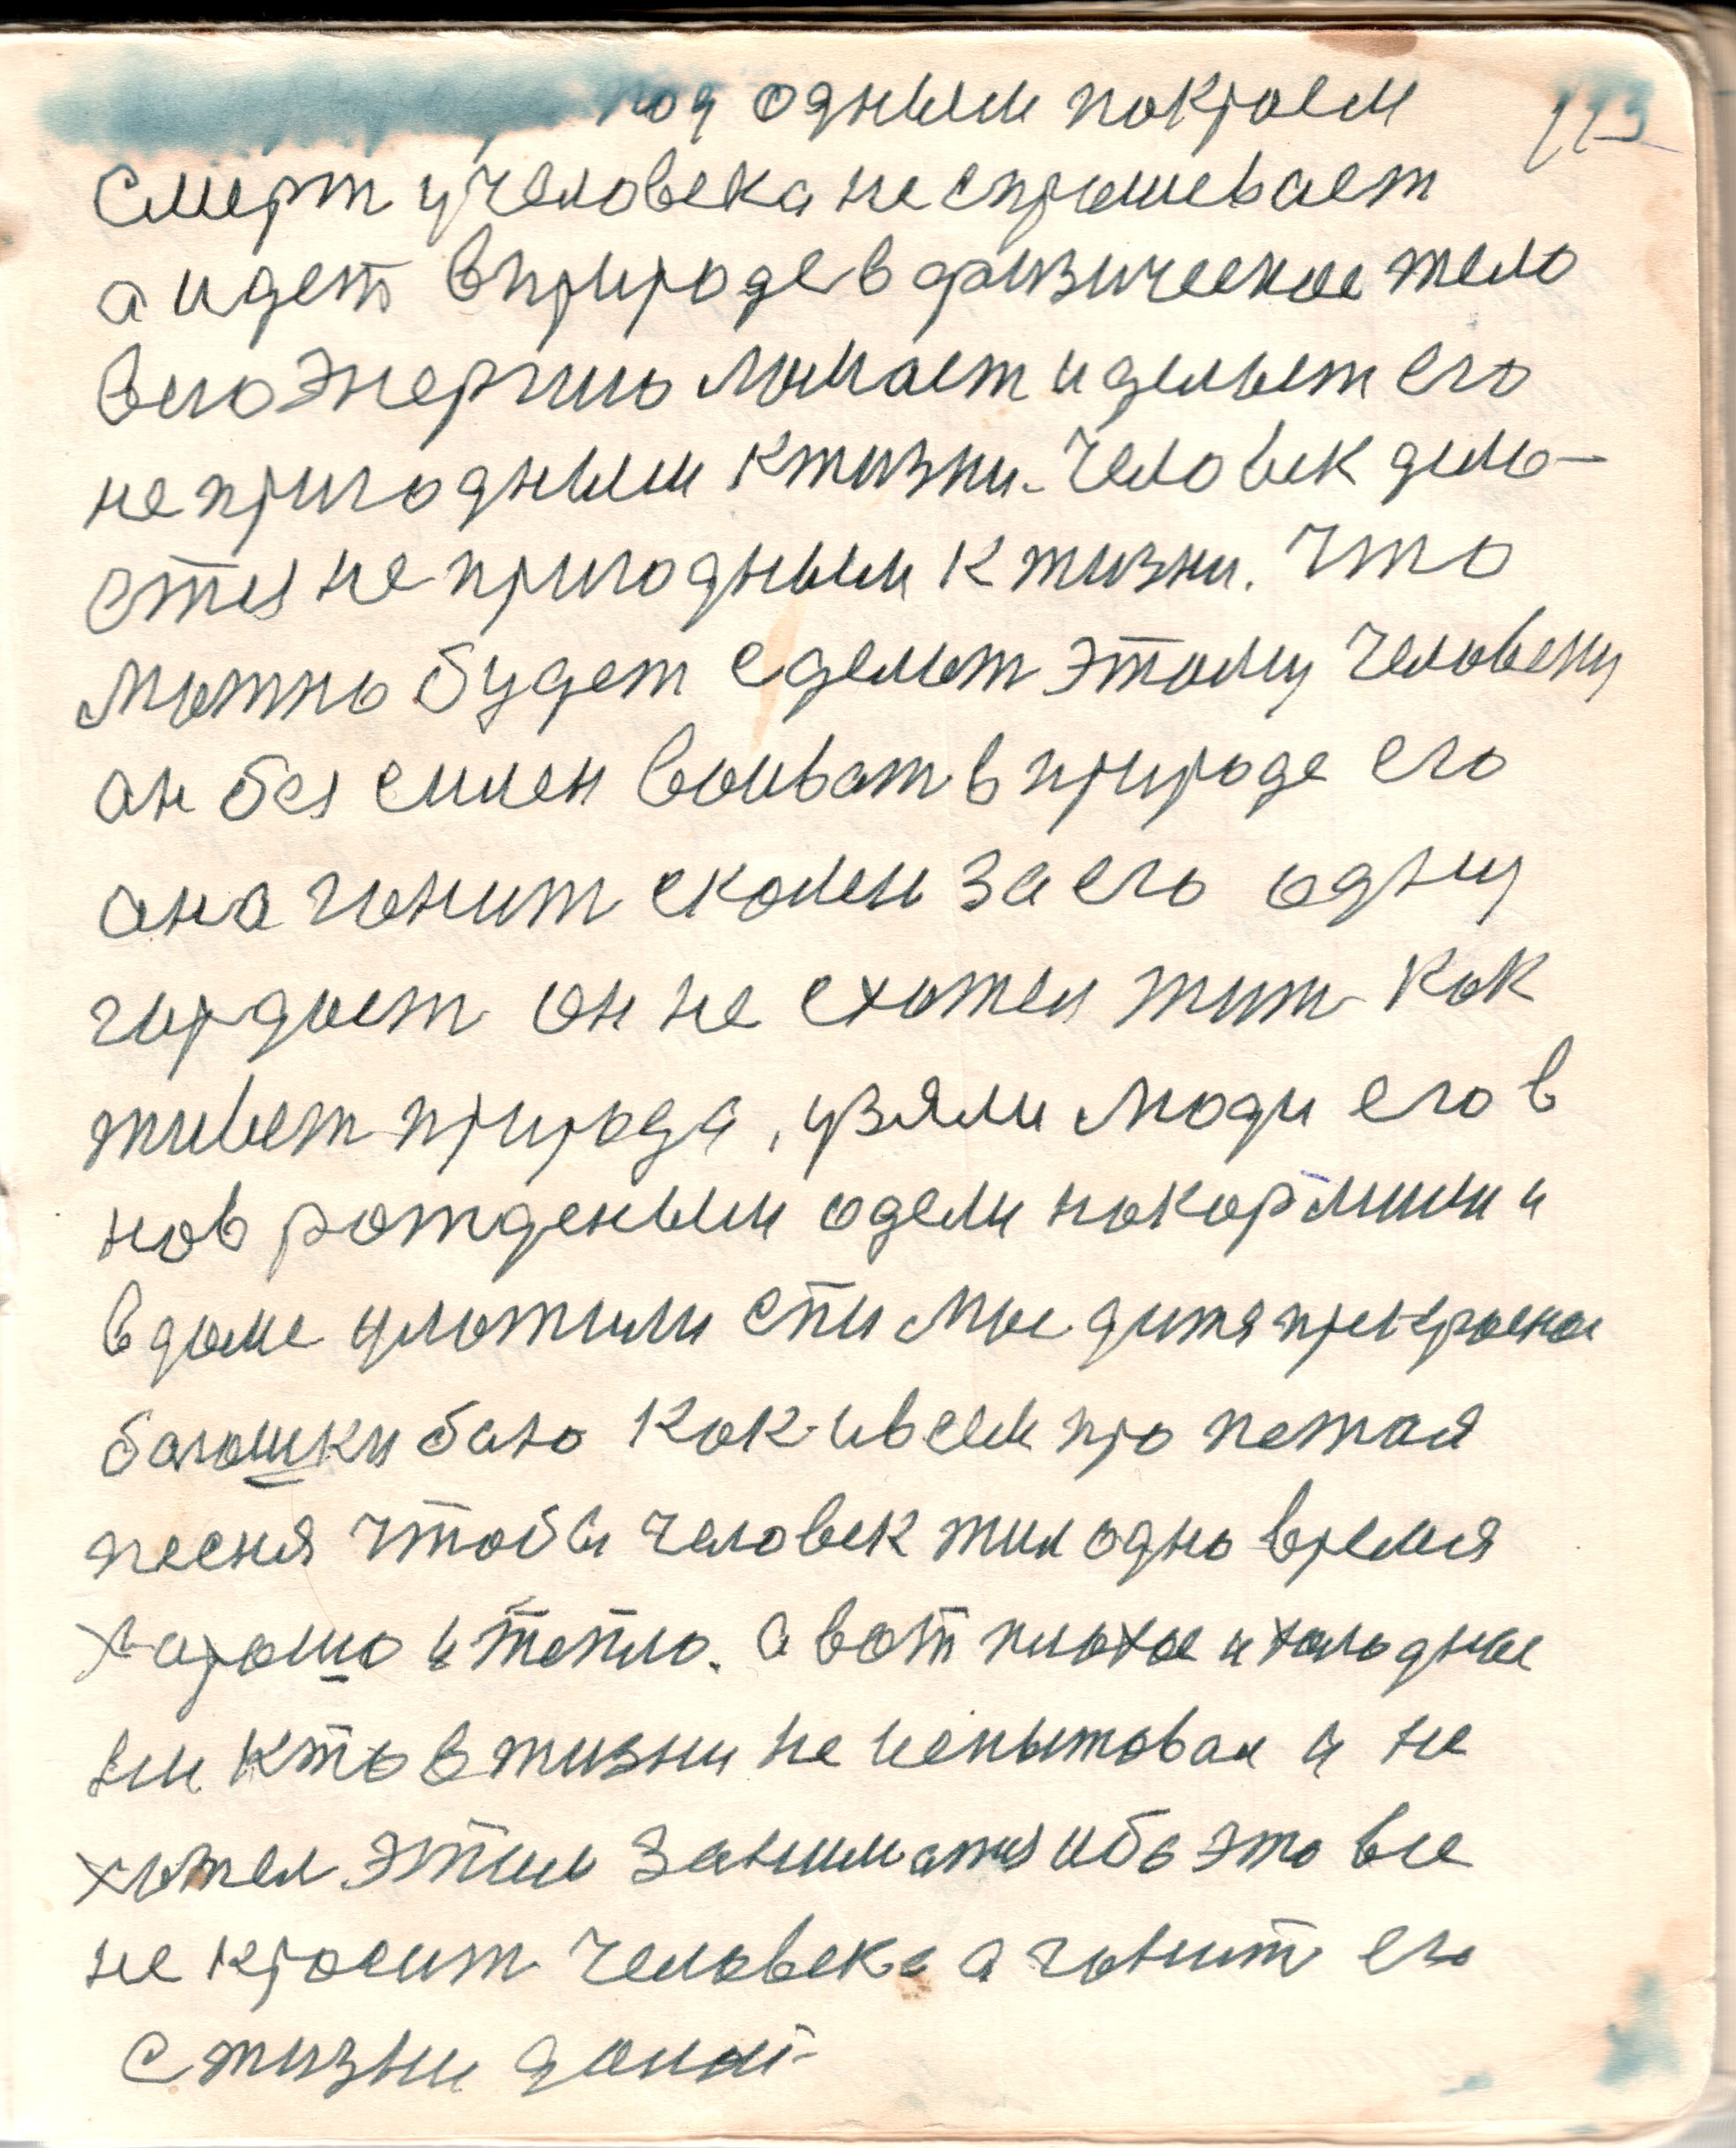 под одным покроем 113
Смерт у человека не спрашевает
а идет в природе в физическое тело
в его энергию ломает и делает его
не пригодным к жизни. Человек дело-
ется не пригодным к жизни. Что
можно будет сделат этому человеку
ан без силен воиват в природе его
ана гонит скамен за его одну
гордаст он не схотел жит как
живет природа, узяли люди его в
нов рожденым одели накормили и
в доме уложили спи мое дитя прекраснае
баюшки баю как и всем про петая
песня чтобы человек жил одно время
харошо и тепло. а вот плохое и холоднае
ни кто в жизни не испытовал и не
хотел этим заниматся ибо это все
не красит человека а гонит его
с жизни далой